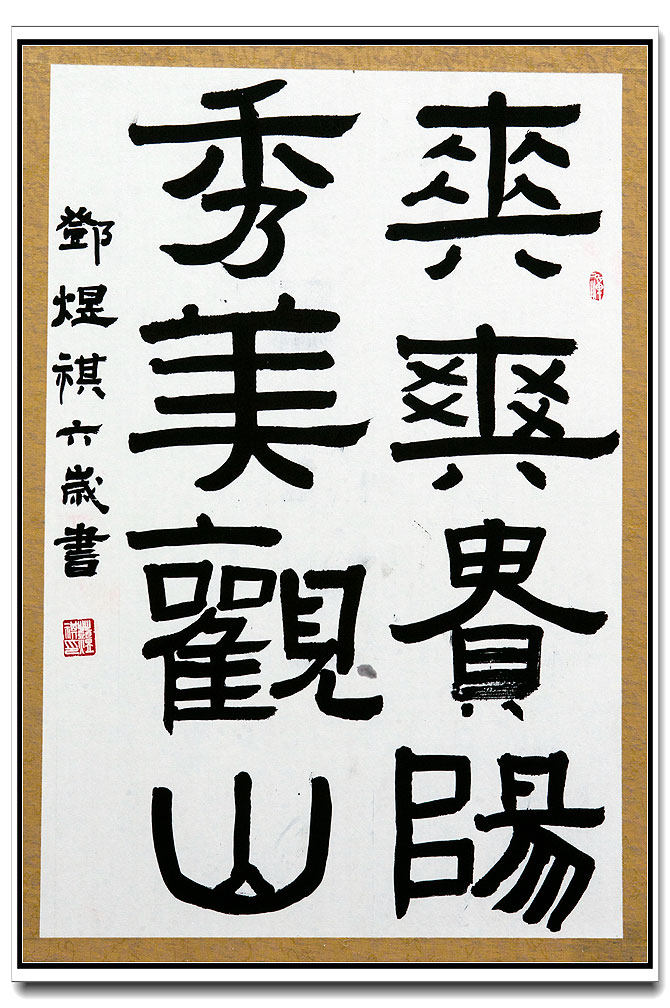 爽爽貴陽
秀美觀山
鄧煜祺六歲書